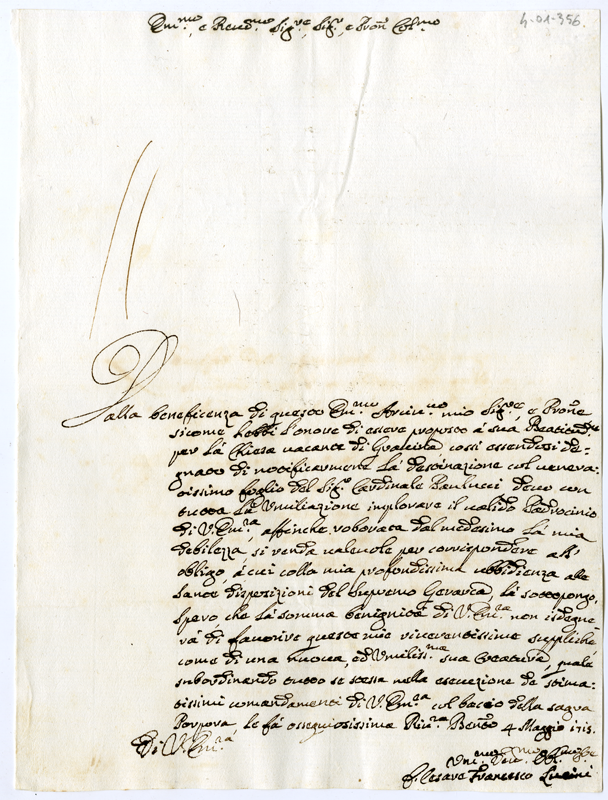 4-01-356.
Em.mo, e Reu.mo Sig.re, Sig.r, e Pron Col.mo
Dalla beneficenza di questo Em.mo Arciu.uo mio Sig.re, e Prone
sicome hebbi l'onore di essere proposto à sua Beatitud.ne
per la Chiesa uacante di Grauina cossi essendosi de-
gnato di notificarmene la destinazione col uenera-
tissimo foglio del Sig.r Cardinale Paulucci deuo con
tutta la Vmiliazione implorare il ualido Padrocinio
di V. Em.za, affinche roborata dal medesimo la mia
debilezza, si renda ualeuole per corrispondere all'
obligo, à cui colla mia profondissima ubbidienza alle
sante disposizioni del Supremo Gerarca, la sottopongo,
spero che la somma benignità di V. Em.za non isdegne
rà di fauorire queste mie riuerentissime suppliche
come di una nuoua, ed Vmiliss.ma sua Creatura, quale
subordinando tutto se stessa nella esecuzione de stima-
tissimi comandamenti di V. Em.za col baccio della sagra
Porpora, le fà ossequiosissima Riu.za Beneto 4 Maggio 1715.
Di V. Em.za
Vm.mo
F. Cesare Francesco Lucini